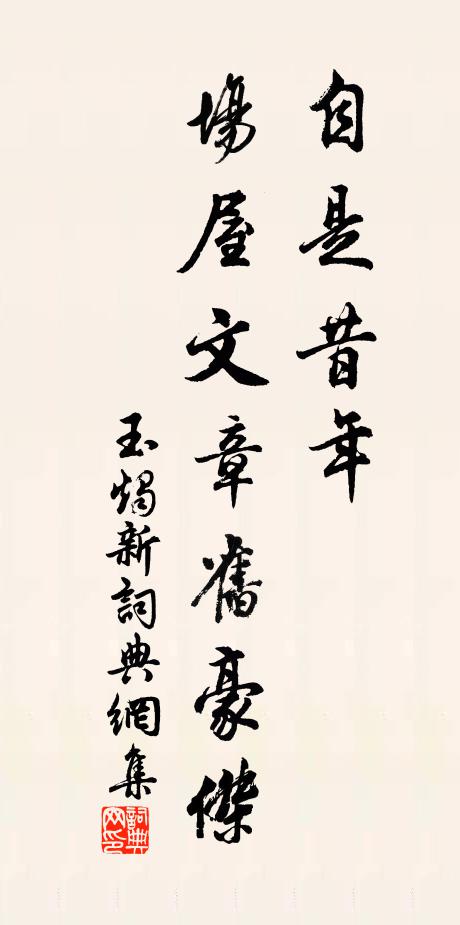 自是昔年
場屋文章舊豪傑
玉燭新詞典網集
詞典网印